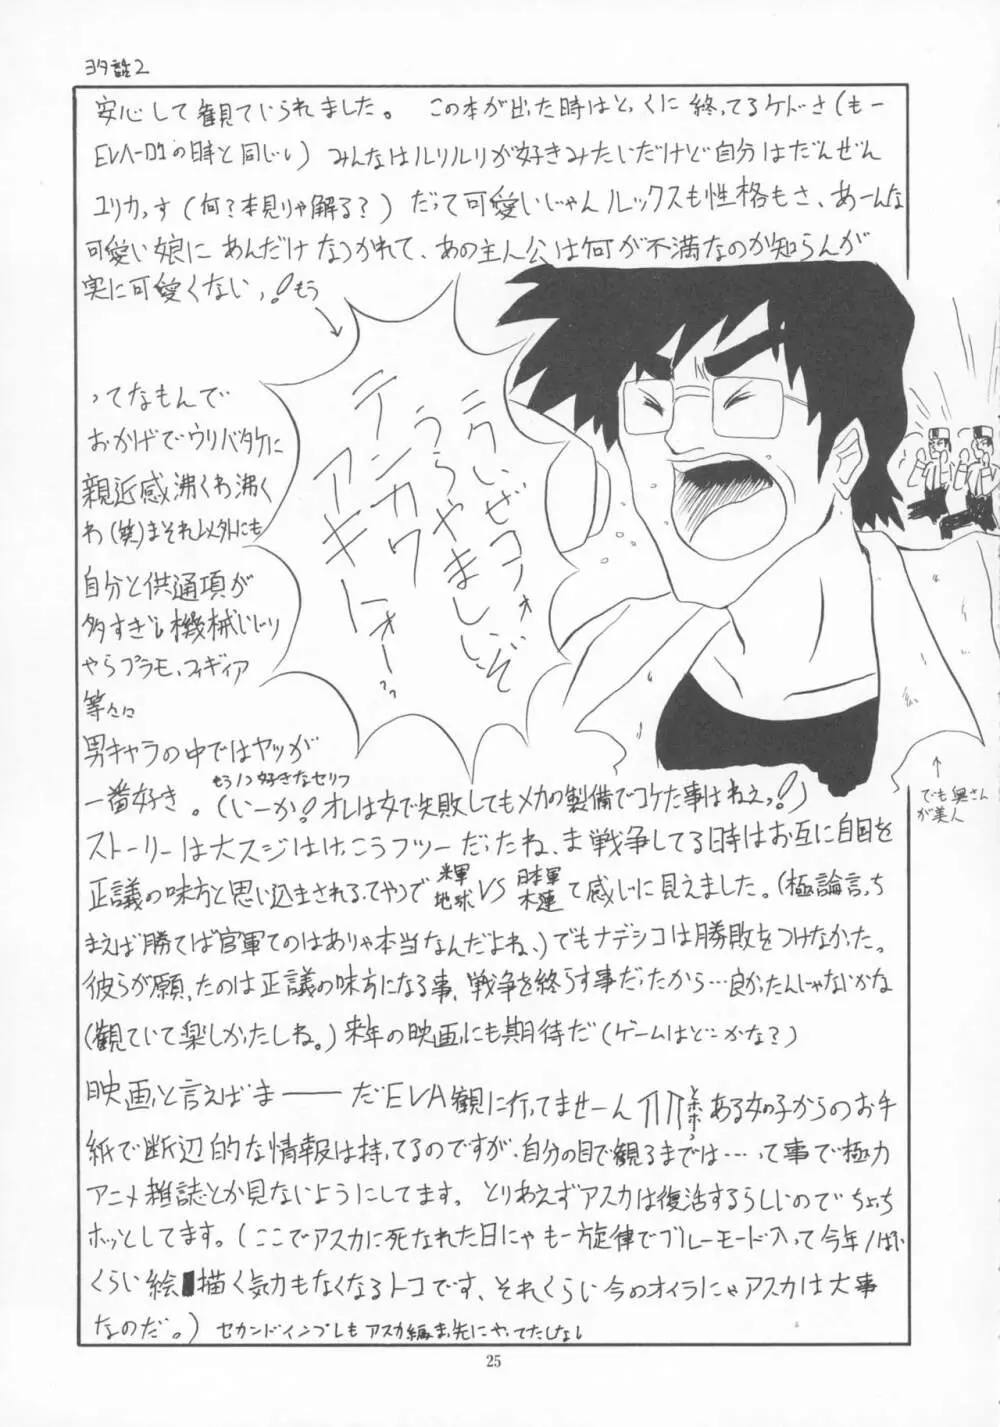 ヨタ話2
安心して観てじられました。 この本が出た時はとっくに終ってるケドさ(もー
EVA-01の時と同じい) みんなはルリルリが好きみたいだけど自分はだんぜん
ユリカっす(何?本見りゃ解る?) だって可愛いじゃんルックスも性格もさ、あーんな
可愛い娘にあんだけなつかれて、あの主人公は何が不満なのか知らんが
実に可愛くないっ!もう
ニクいぜコンチクショォ
うらやましいぞ
テンカワ
アキトォーっ
ってなもんで
おかげでウリバタケに
親近感沸くわ沸く
わ(笑)まそれ以外にも
自分と供通項が
多すぎる機械いじり
やらプラモ、フィギィア
等々に
男キャラの中ではヤツが
もう1つ好きなセリフ
一番好き。(いーか!オレは女で失敗してもメカの製備でコケた事はねえっ!)
でも奥さん
が美人
ストーリーは大スジはけっこうフツーだったね、ま戦争してる時はお互に自国を
正議の味方と思い込まされるってやつで 米軍 地球 VS 日本軍 木連 て感じに見えました。(極論言っち
まえば勝てば官軍てのはありゃ本当なんだよね、)でもナデシコは勝敗をつけなかった。
彼らが願ったのは正議の味方になる事、戦争を終らす事だったから…良かったんじゃないかな
(観ていて楽しかったしね。)来年の映画にも期待だ(ゲームはどこかな?)
映画と言えばまー――だEVA観に行ってませーん トホホっ ある女の子からのお手
紙で断辺的な情報は持ってるのですが、自分の目で観るまでは…って事で極力
アニメ雑誌とか見ないようにしてます。とりあえずアスカは復活するらしいのでちょっち
ホッとしてます。(ここでアスカに死なれた日にゃもー旋律でブルーモード入って今年1ぱい
くらい絵描く気力もなくなるトコです、それくらい今のオイラにゃアスカは大事
なのだ。) セカンドインプレもアスカ編ま先にやってたしなし
25